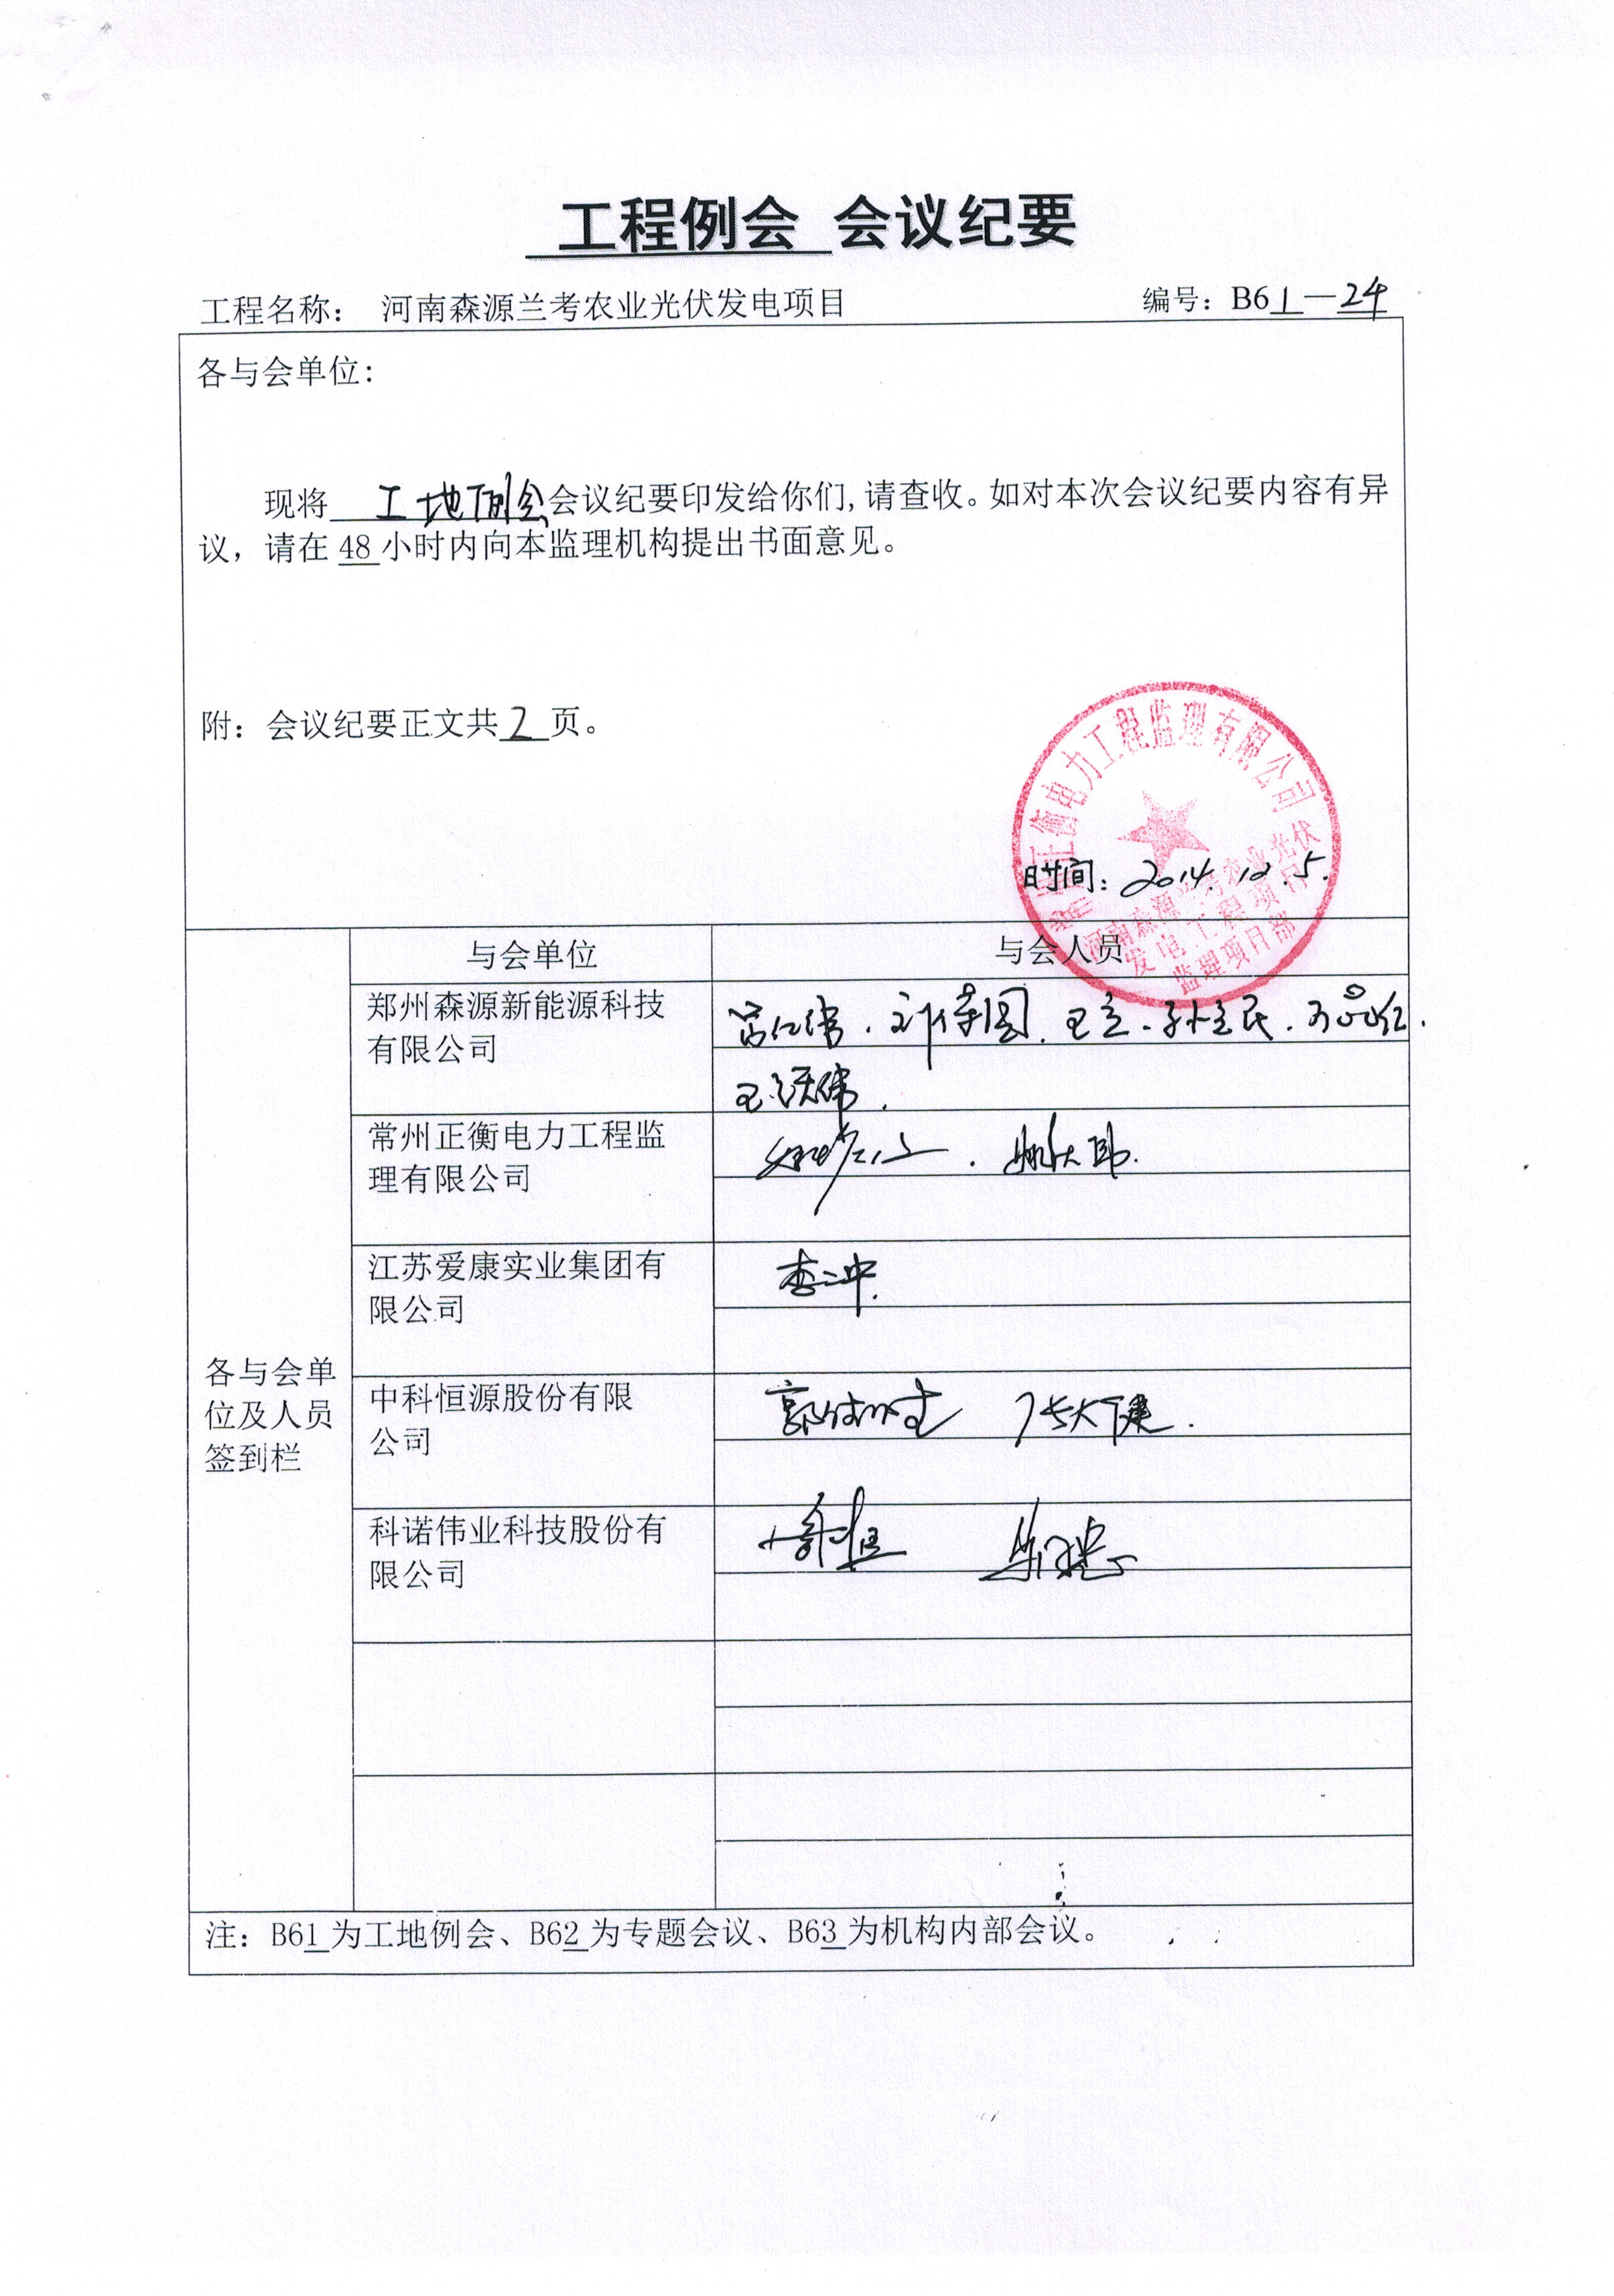 工程例会 会议纪要
工程名称： 河南森源兰考农业光伏发电项目 编号：B61—24
各与会单位：
现将 工地例会会议纪要印发给你们,请查收。如对本次会议纪要内容有异
议，请在48小时内向本监理机构提出书面意见。
附：会议纪要正文共2页。
常州正衡电力工程监理有限公司
时间：2014.12.5.
河南森源兰考农业光伏
发电工程项目
监理项目部
与会单位 与会人员
郑州森源新能源科技
有限公司
常州正衡电力工程监
理有限公司
江苏爱康实业集团有
限公司
中科恒源股份有限
公司
科诺伟业科技股份有
限公司
各与会单
位及人员
签到栏
注：B61为工地例会、B62为专题会议、B63为机构内部会议。